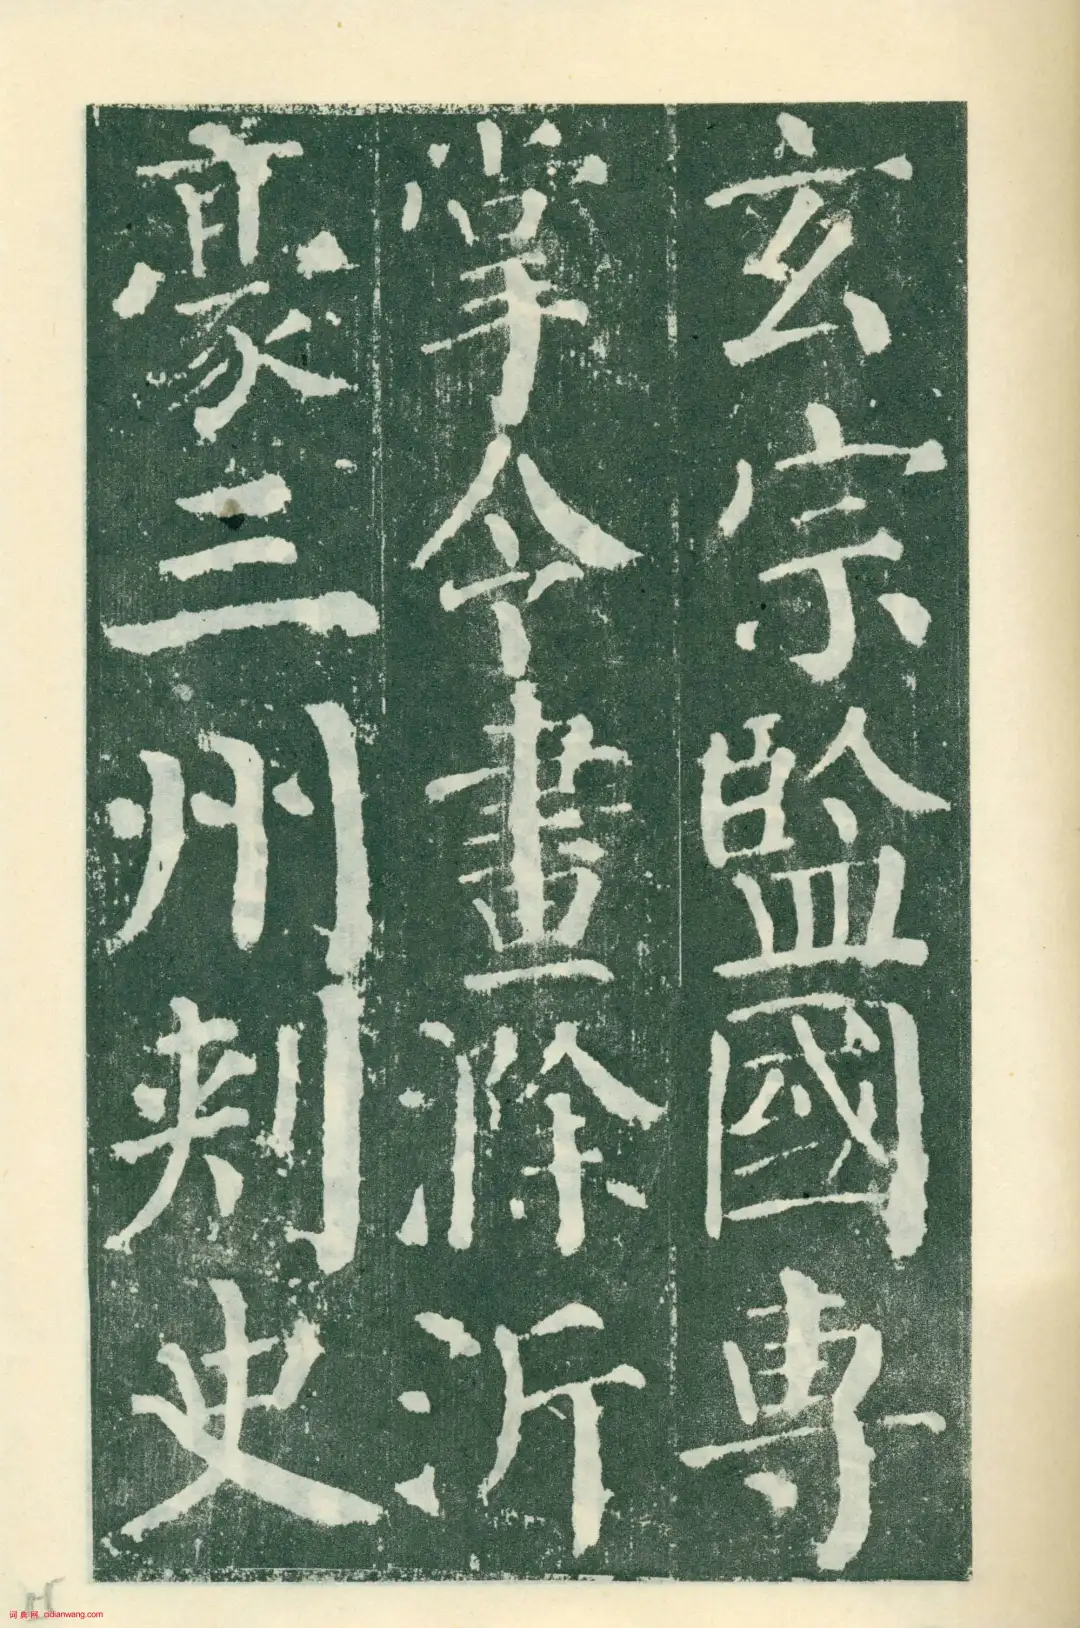 玄宗監國專
掌令畫滁沂
豪三州刺史
词典网 cidianwang.com